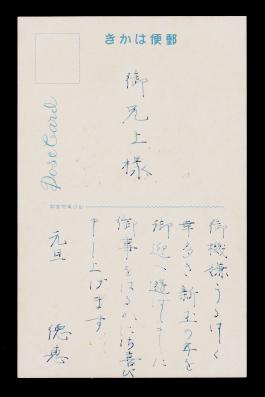 郵便はかき
Post Card
御兄上様
御機嫌うるはしく
幸多き新玉の年を
御迎へ遊ばしました
御事をはるかにお喜び
申し上げます
元旦
徳恵